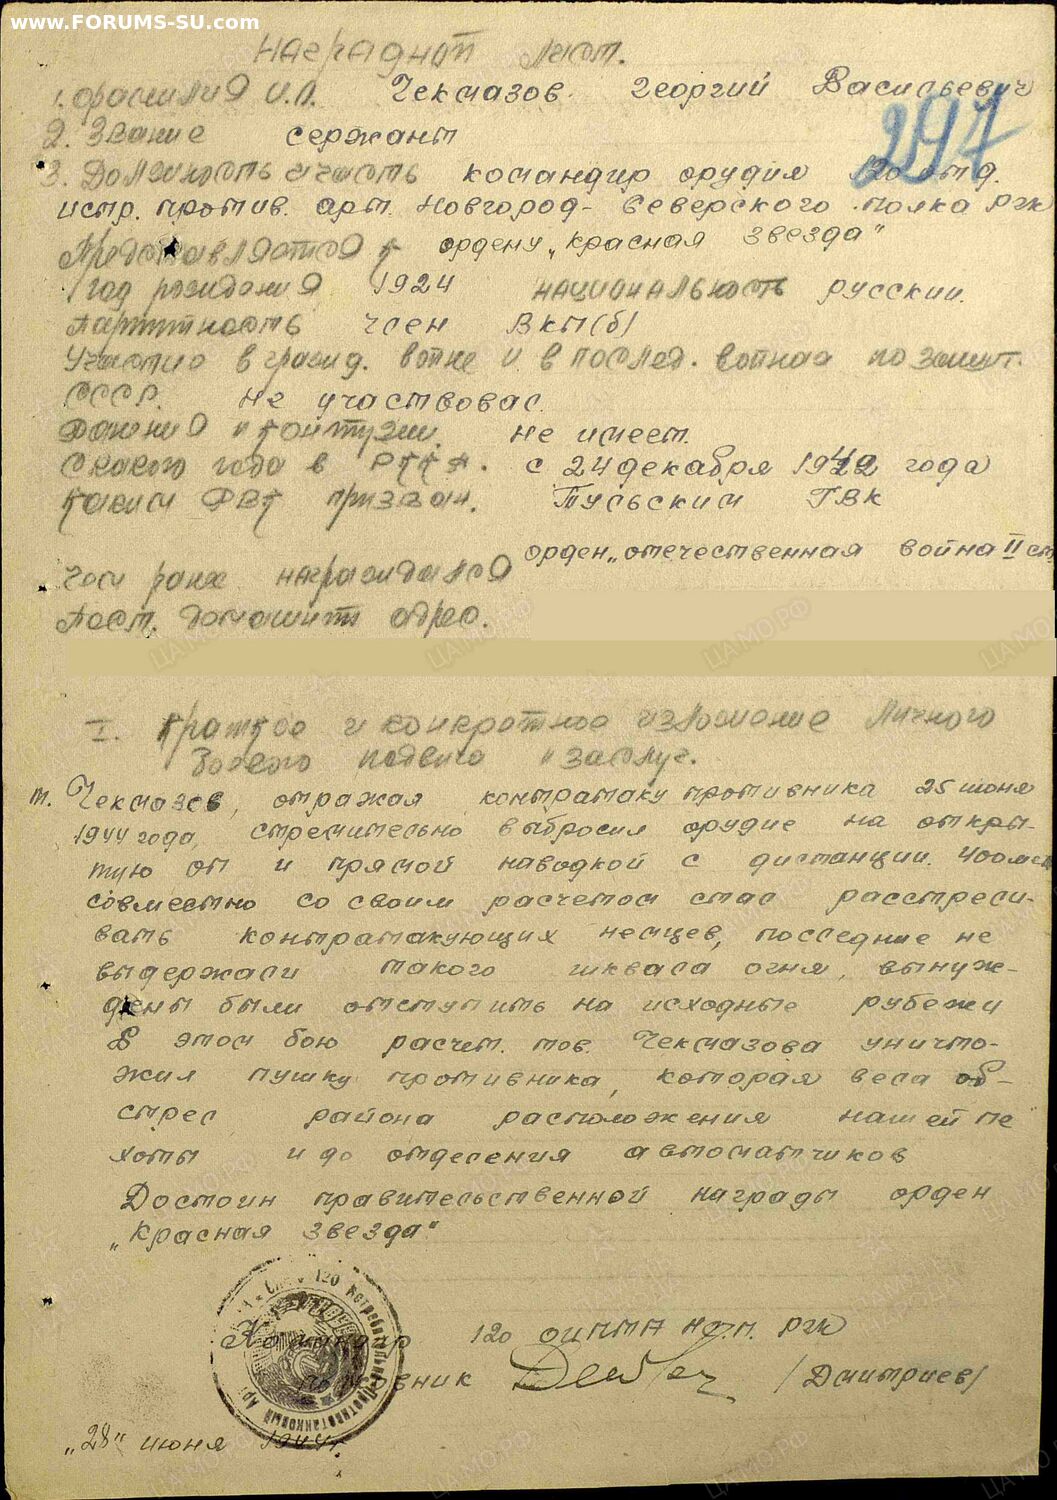 www.FORUMS-SU.com
Наградной лист.
297
1. Фамилия И.О. Чекмазов Георгий Васильевич
2. Звание сержант
3. Должность и часть командир орудия 120 отд.
истр. против. арт. Новгород-Северского полка РГК
Представляется к ордену „Красная звезда"
Год рождения 1924 национальность русский.
Партийность член ВКП(б)
Участие в гражд. войне и в послед. войнах по защит.
СССР. не участвовал.
Ранения и контузии. не имеет.
С какого года в РККА. с 24 декабря 1942 года
Каким РВК призван. Тульским ГВК
орден „отечественная война II ст
Чем ранее награждался
Пост. домашний адрес.
I. Краткое и конкретное изложение личного
боевого подвига и заслуг.
т. Чекмазов, отражая контратаку противника 25 июня
1944 года, стремительно выбросил орудие на откры-
тую оп и прямой наводкой с дистанции 400 мет
совместно со своим расчетом стал расстрели-
вать контратакующих немцев, последние не
выдержали такого шквала огня, вынуж-
дены были отступить на исходные рубежи
В этом бою расчет тов. Чекмазова уничто-
жил пушку противника, которая вела об-
стрел района расположения нашей пе
хоты и до отделения автоматчиков
Достоин правительственной награды орден
„Красная звезда"
Командир 120 оиптап РГК
полковник /Дмитриев/
„28" июня 1944г.